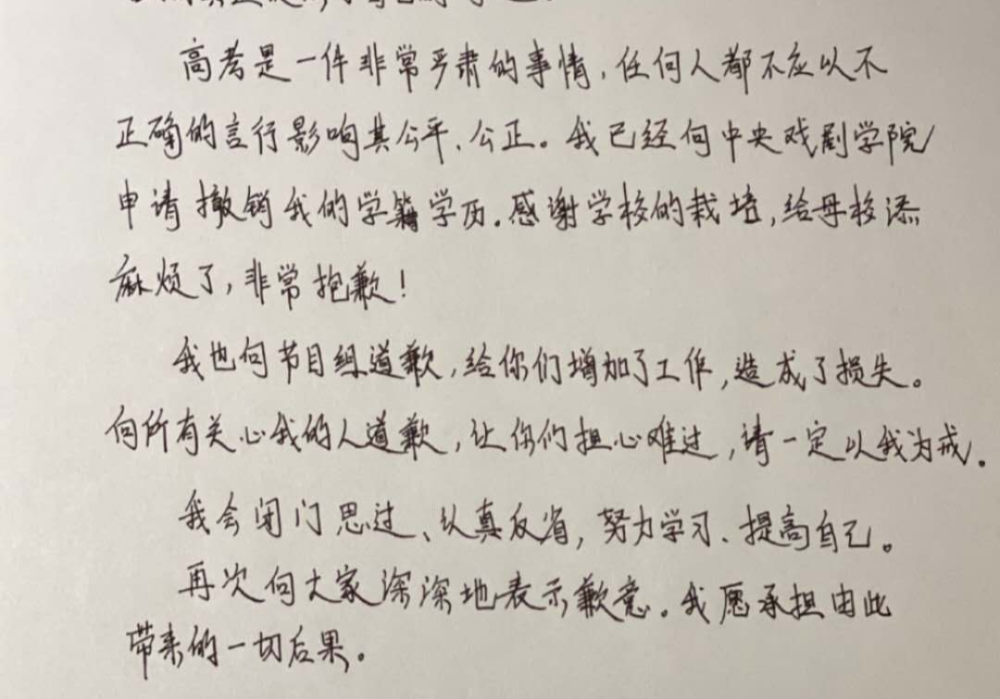 高考是一件非常严肃的事情，任何人都不应以不
正确的言行影响其公平、公正。我已经向中央戏剧学院
申请撤销我的学籍学历。感谢学校的栽培，给母校添
麻烦了，非常抱歉！
我也向节目组道歉，给你们增加了工作，造成了损失。
向所有关心我的人道歉，让你们担心难过，请一定以我为戒。
我会闭门思过、认真反省，努力学习、提高自己。
再次向大家深深地表示歉意。我愿承担由此
带来的一切后果。